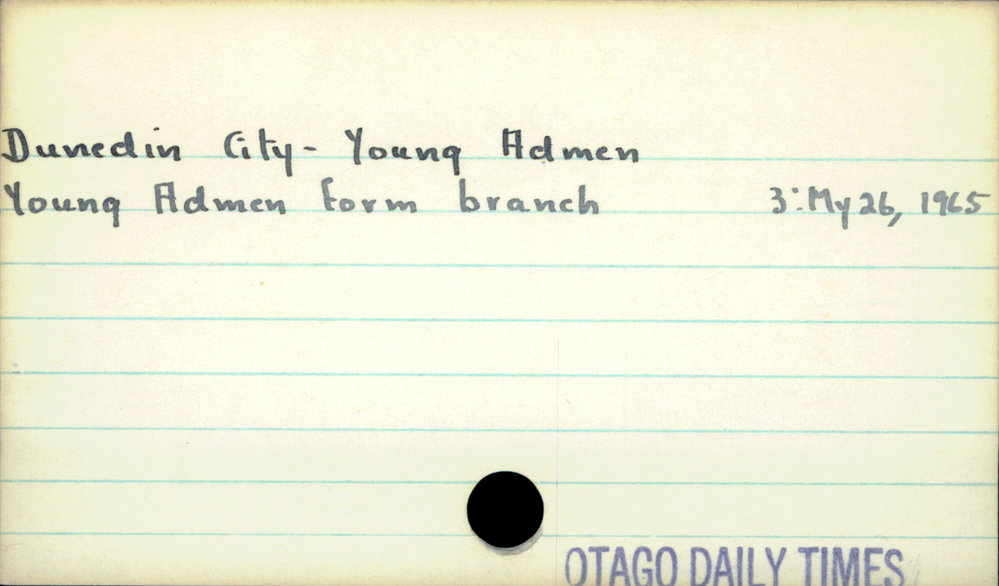 Dunedin City - Young Admen
Young Admen form branch 3:My 26, 1965
OTAGO DAILY TIMES